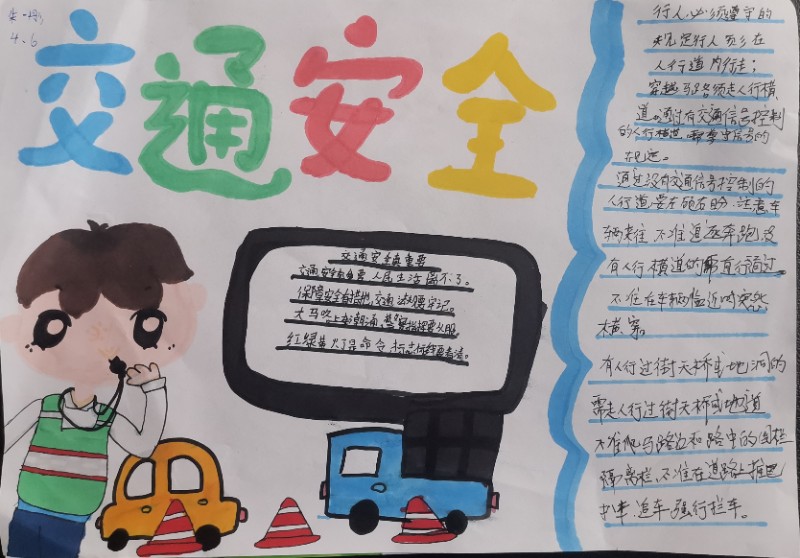 4.6
交通安全
交通安全真重要
交通安全真重要 人居生活离不了。
保障安全有措施,交通法规要牢记。
大马路上车潮涌,警察指挥要服
红绿黄灯是命令 标志标线要看清。
行人必须遵守的
规定行人须在
人行道内行走;
穿越马路须走人行横
道。通过有交通信号控制
的人行横道,需遵守信号的
规定。
通过没有交通信号控制的
人行道要左顾右盼,注意车
辆来往,不准追逐奔跑,没
有人行横道的需直行通过
不准在车辆临近时突然
横穿。
有人行过街天桥或地洞的
需走人行过街天桥或地道
不准爬马路边和路中的围栏
隔离栏,不准在道路上推
扒车,追车,强行拦车。